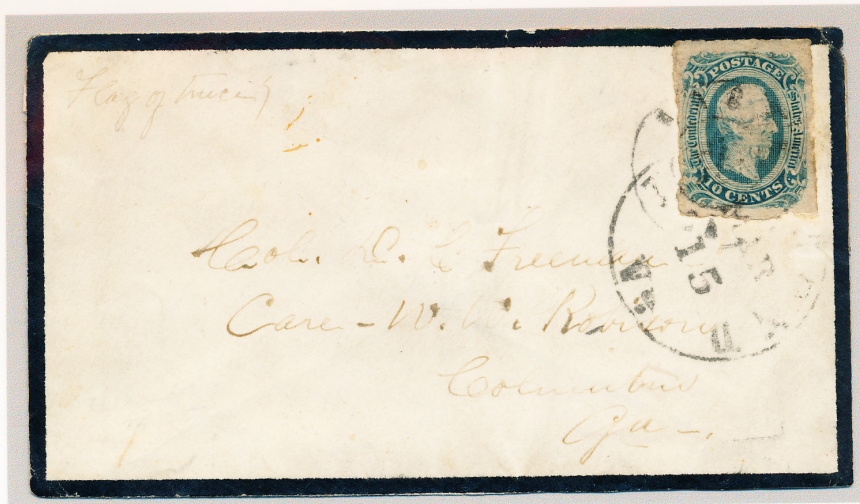 Flag of truce
POSTAGE
The Confederate States America
10 CENTS
15
VA
Col. D. C. Freeman
Care - W. Robinson
Columbus
Ga -.